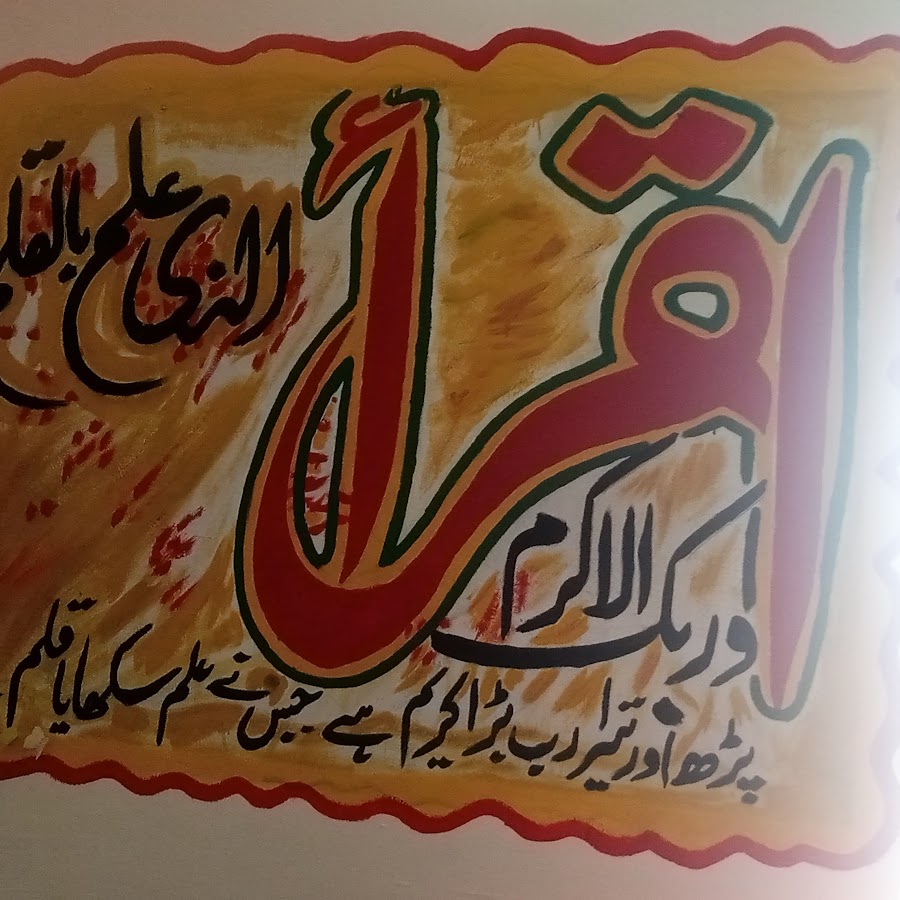 اقرأ
وربک الاکرم
الذی علم بالقلم
پڑھ اور تیرا رب بڑا کریم ہے جس نے علم سکھایا قلم